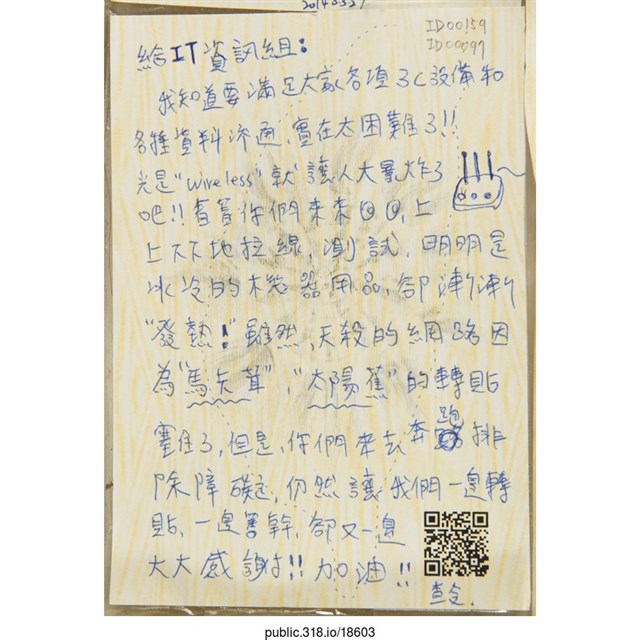 20140327
ID00159
ID00597
給IT資訊組：
我知道要滿足大家各項3C設備和
各種資料流通,實在太困難了!!
光是"wireless"就讓人大暴炸了
吧!!看著你們來來回回,上
上下下地拉線,測試,明明是
冰冷的機器用品,卻漸漸
"發熱!"雖然,天殺的網路因
為"馬卡茸","太陽蕉"的轉貼
塞住了,但是,你們來去奔跑排
除障礙,仍然讓我們一邊轉
貼,一邊罵幹,卻又一邊
大大感謝!!加油!!
public.318.io/18603